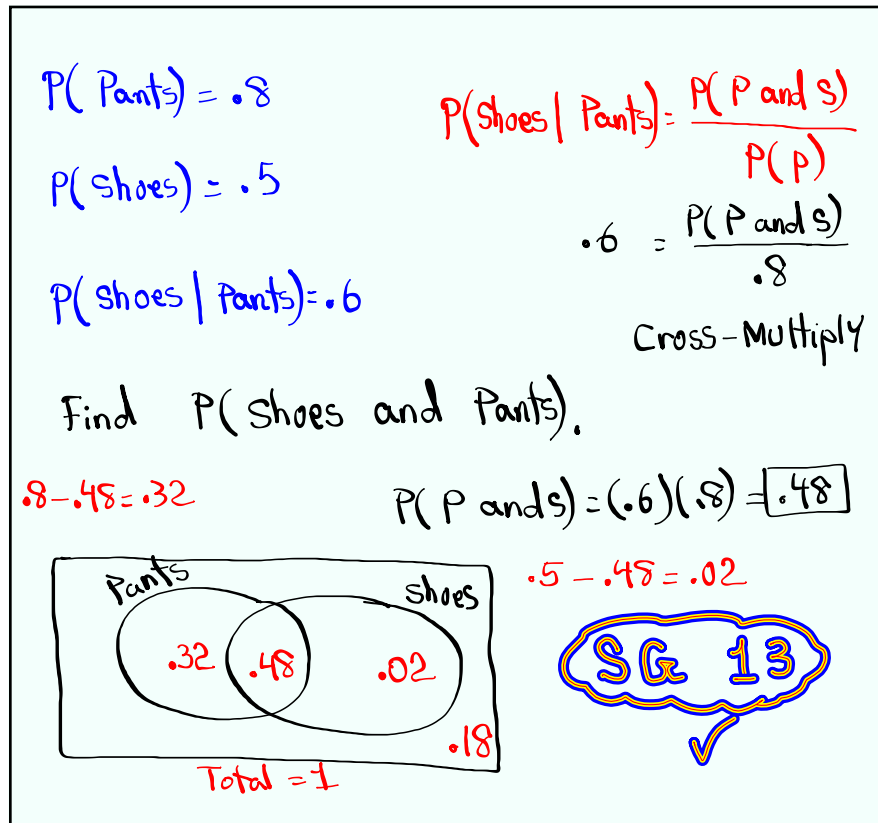 P(Pants) = .8
P(Shoes) = .5
P(Shoes | Pants) = .6
P(Shoes | Pants) = P(P and S) / P(P)
.6 = P(P and S) / .8
Cross-Multiply
Find P(Shoes and Pants).
.8 - .48 = .32
P(P and S) = (.6)(.8) = .48
.5 - .48 = .02
Pants
Shoes
.32 .48 .02
.18
Total = 1
SG 13